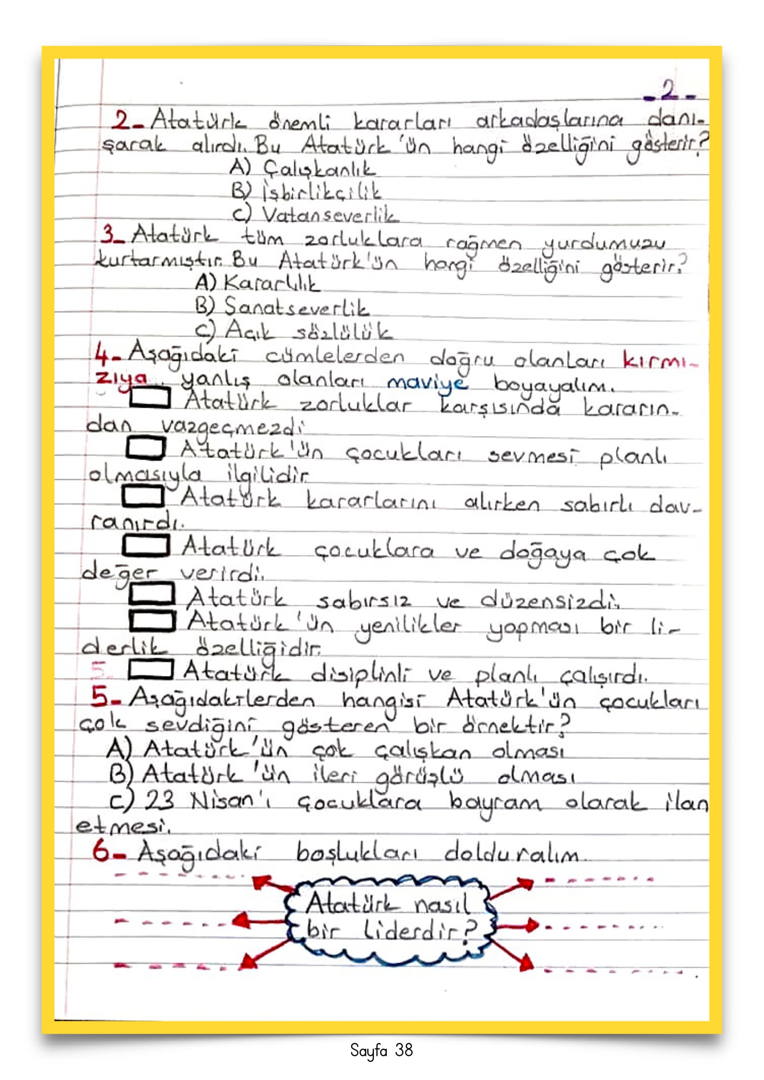 -2-
2- Atatürk önemli kararları arkadaşlarına danı-
şarak alırdı. Bu Atatürk'ün hangi özelliğini gösterir?
A) Çalışkanlık
B) İşbirlikçilik
C) Vatanseverlik
3- Atatürk tüm zorluklara rağmen yurdumuzu
kurtarmıştır. Bu Atatürk'ün hangi özelliğini gösterir?
A) Kararlılık
B) Sanatseverlik
C) Açık sözlülük
4- Aşağıdaki cümlelerden doğru olanları kırmı-
zıya, yanlış olanları maviye boyayalım.
Atatürk zorluklar karşısında kararın-
dan vazgeçmezdi
Atatürk'ün çocukları sevmesi planlı
olmasıyla ilgilidir
Atatürk kararlarını alırken sabırlı dav-
ranırdı.
Atatürk çocuklara ve doğaya çok
değer verirdi.
Atatürk sabırsız ve düzensizdi.
Atatürk'ün yenilikler yapması bir li-
derlik özelliğidir.
5. Atatürk disiplinli ve planlı çalışırdı.
5- Aşağıdakilerden hangisi Atatürk'ün çocukları
çok sevdiğini gösteren bir örnektir?
A) Atatürk'ün çok çalışkan olması
B) Atatürk'ün ileri görüşlü olması
C) 23 Nisan'ı çocuklara bayram olarak ilan
etmesi.
6- Aşağıdaki boşlukları dolduralım.
Atatürk nasıl
bir liderdir?
Sayfa 38